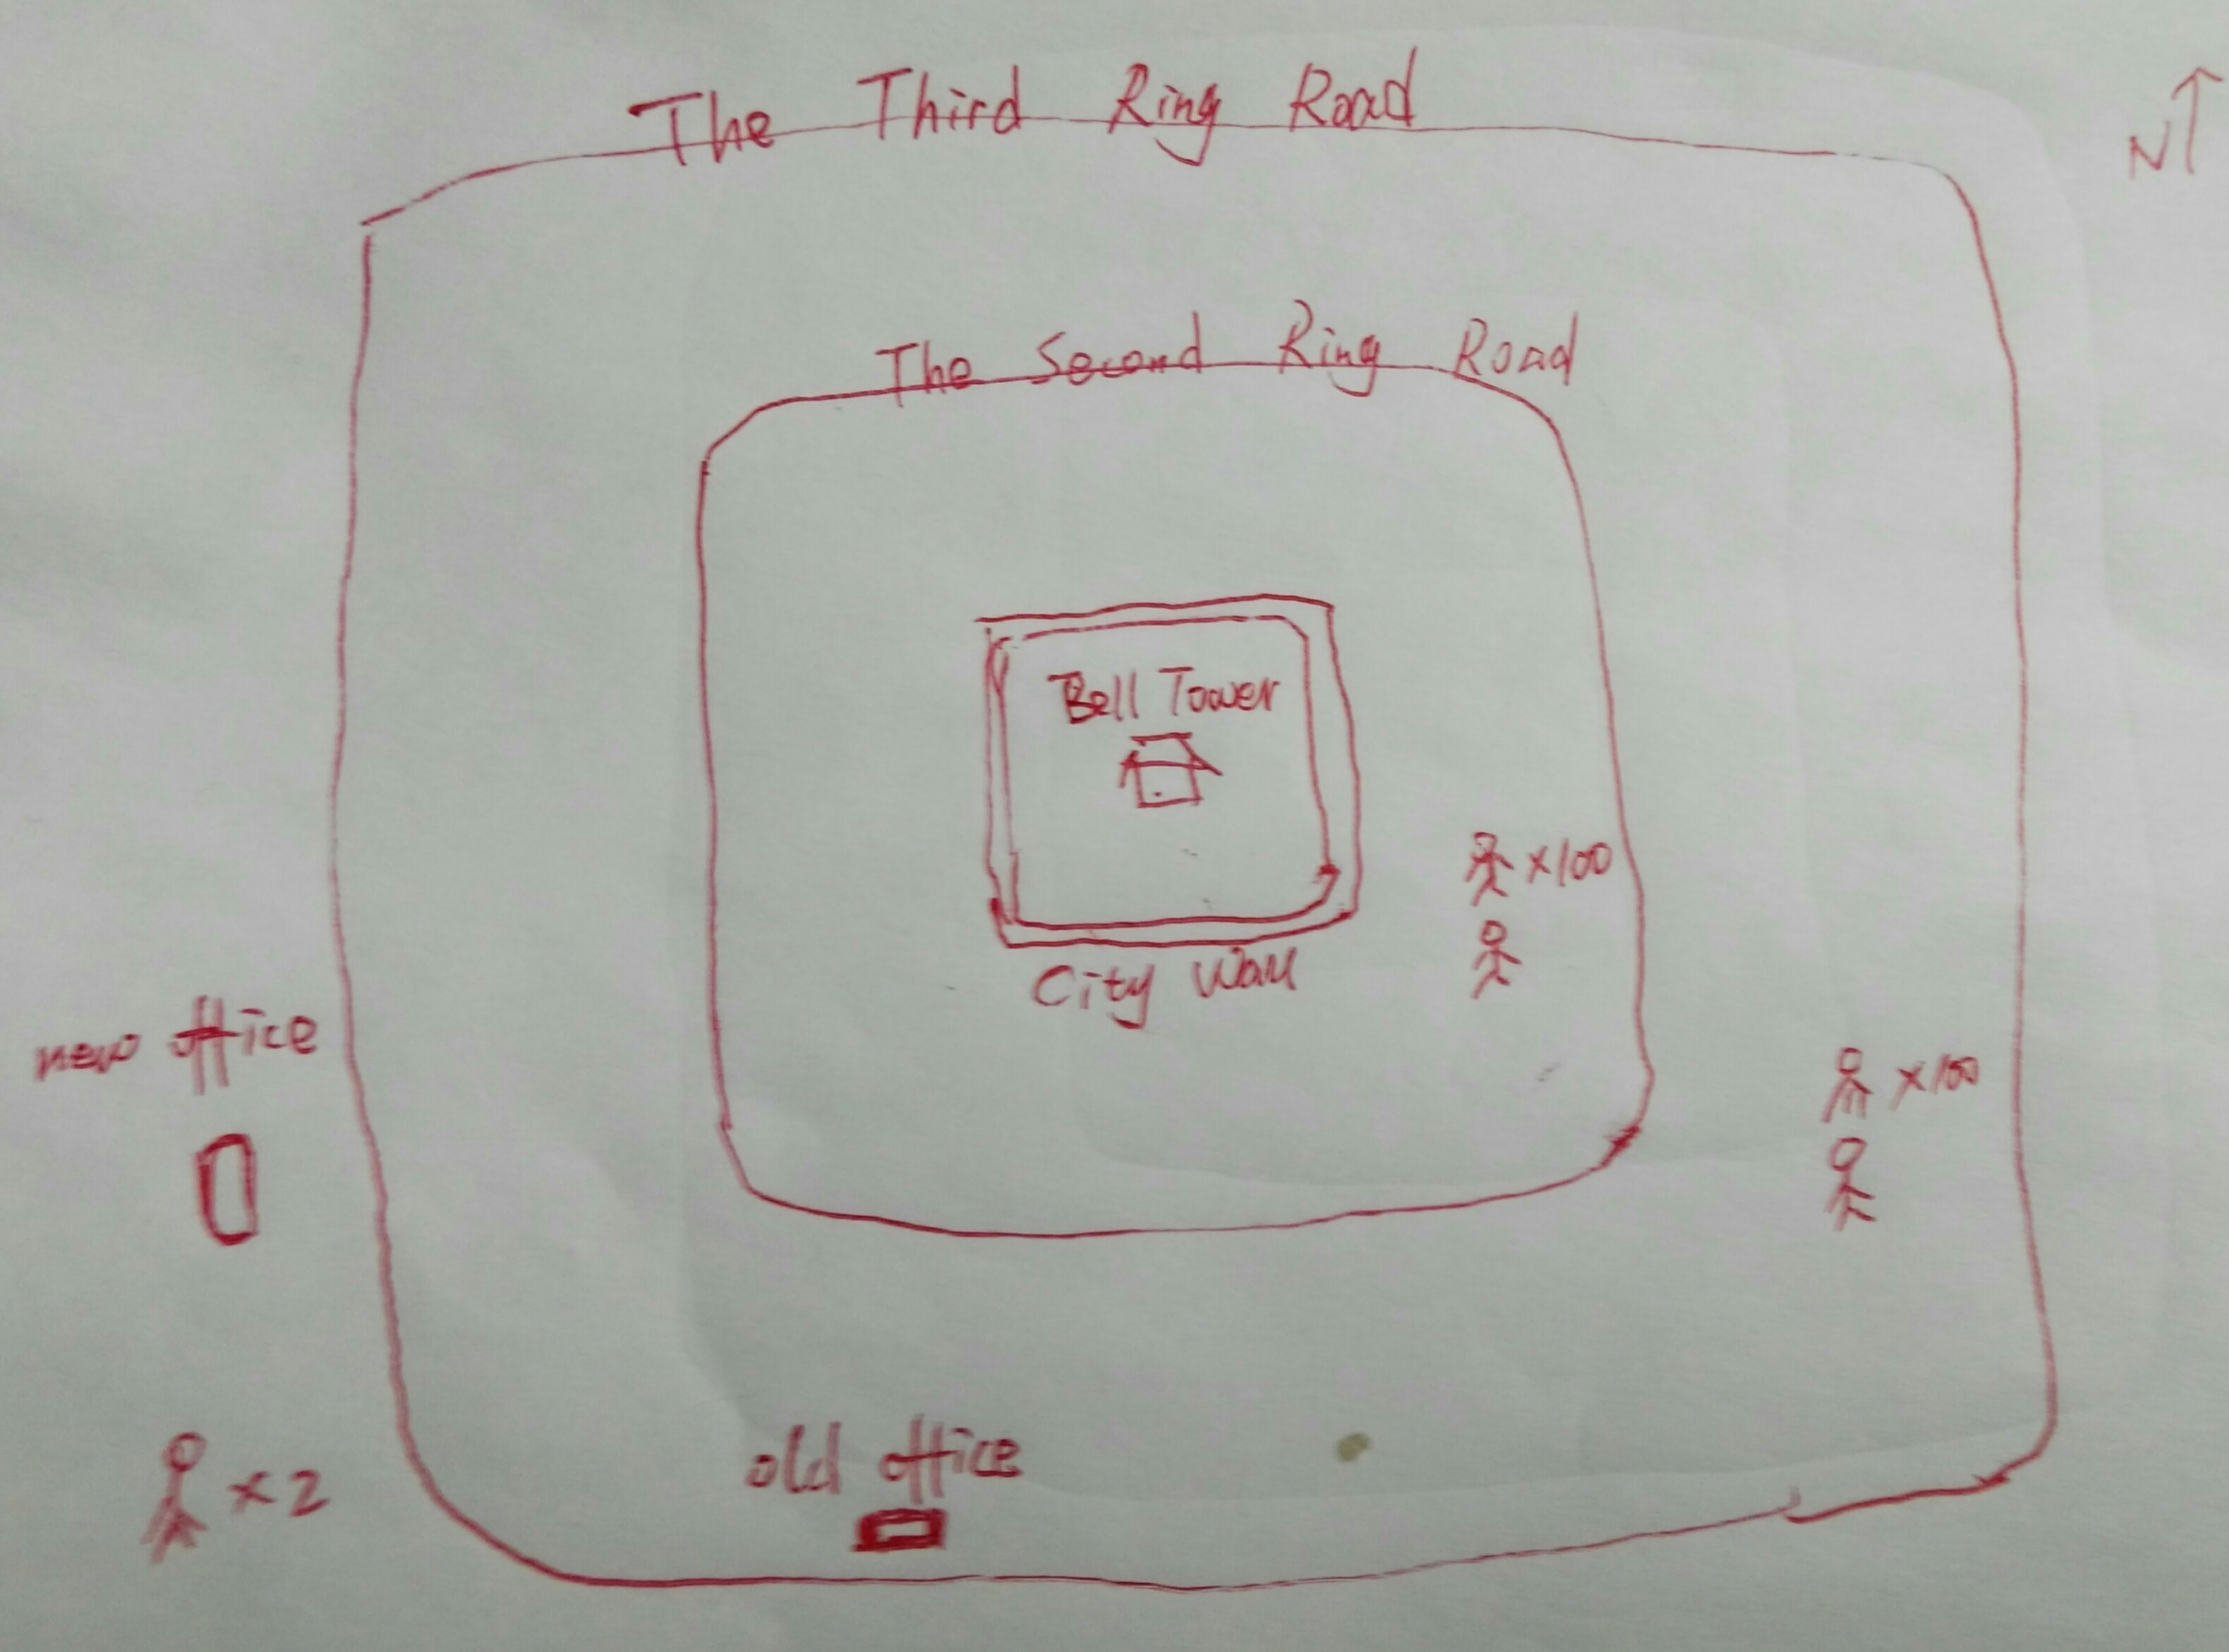 The Third Ring Road
N
The Second Ring Road
Bell Tower
×100
City Wall
new office
×100
×2
old office